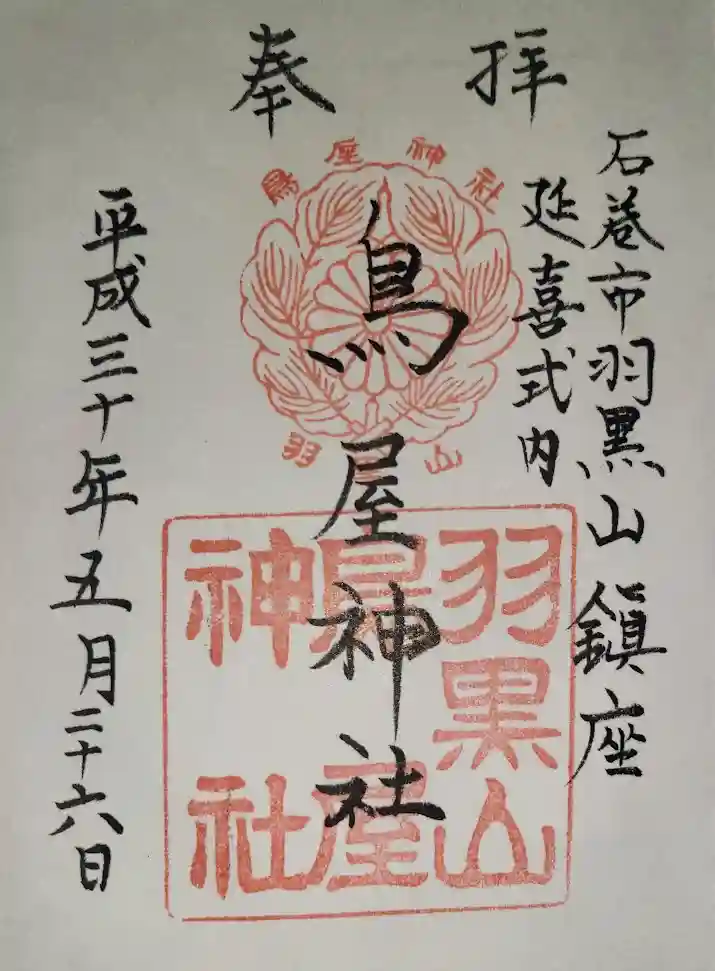 奉拝
石巻市羽黒山鎮座
延喜式内
鳥屋神社
平成三十年五月二十六日
鳥屋神社
羽黒山
羽黒山
鳥屋
神社